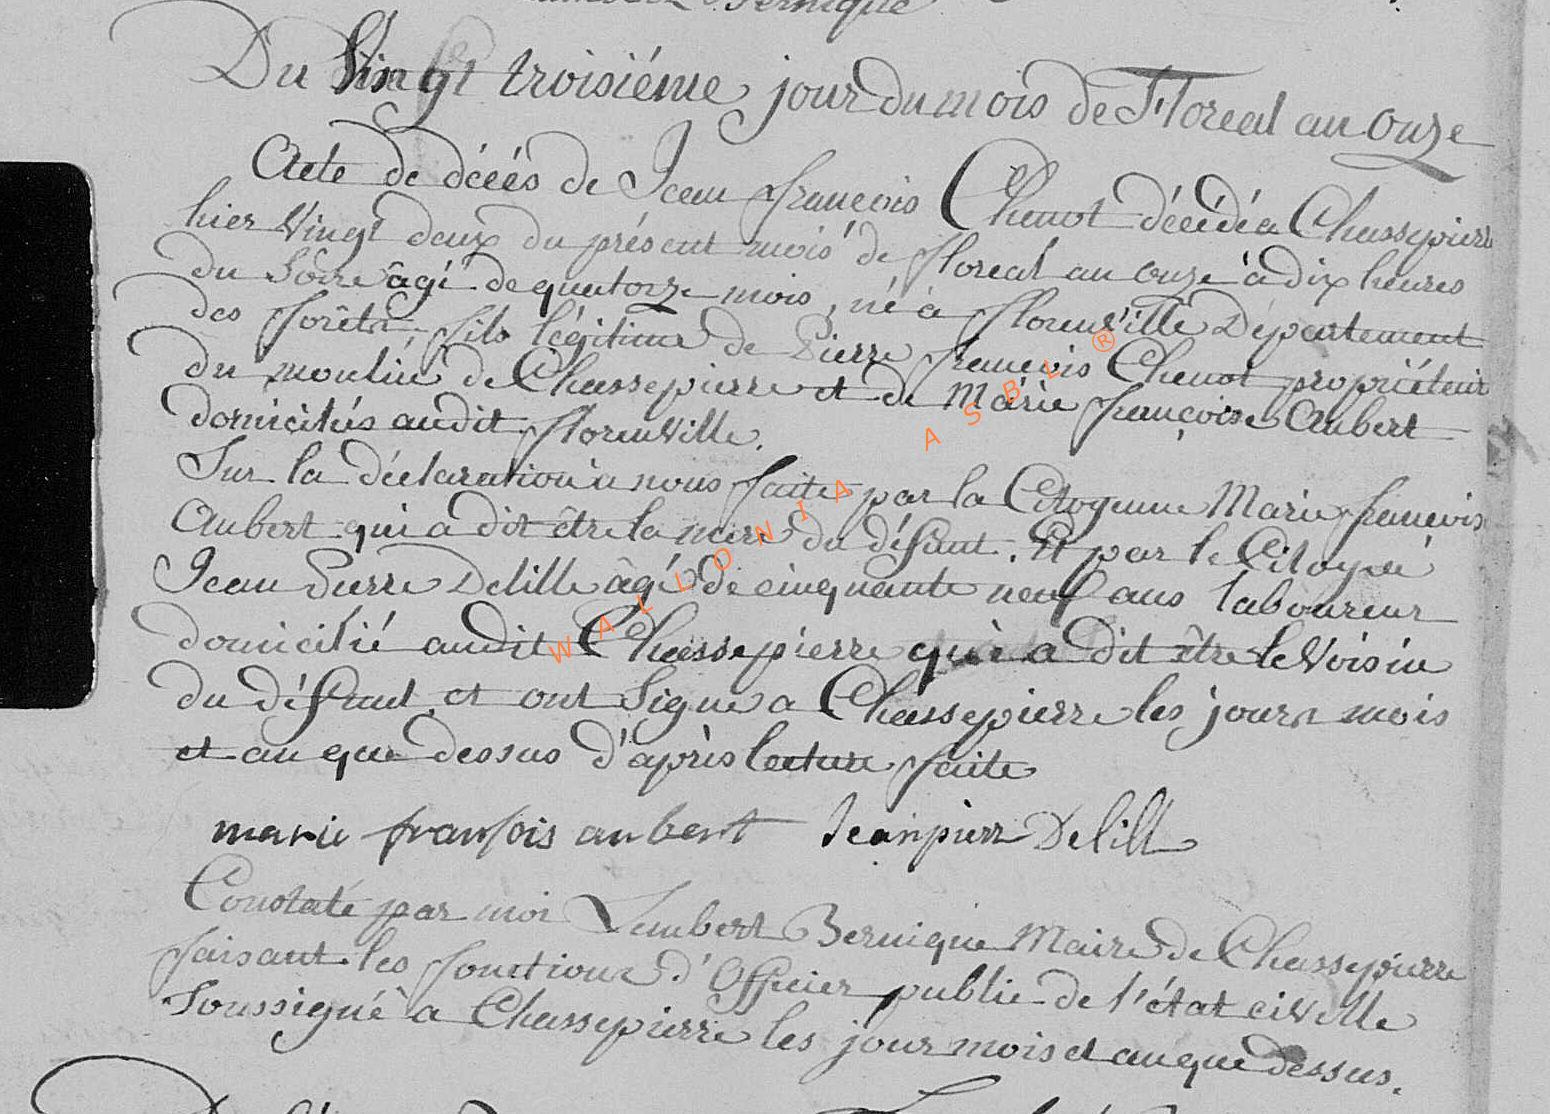 Bernique
Du Vingt troisiéme jour du mois de Floreal an onze
Acte de décés de Jean françois Chenot décédé a Chassepierre
hier Vingt deux du présent mois de floreal an onze à dix heures
du Soire âgé de quatorze mois, né à florenville Département
des forêts, fils légitime de Pierre françois Chenot propriéteur
du moulin de Chassepierre et de Marie françoise Aubert
domiciliés audit florenville.
Sur la déclaration à nous faite par la Citoyenne Marie françois
Aubert qui a dit être la mere du défunt. Et par le Citoyen
Jean Pierre Delille âgé de cinquante neuf ans laboureur
domicilié audit Chassepierre qui a dit être le Voisin
du défunt et ont Signe a Chassepierre les jours mois
et an que dessus d'après lecture faite
marie fransois aubert Jean pierr Delill
Constaté par moi Lambert Bernique Maire de Chassepierre
faisant les fonctions d'Officier public de l'état civille
Soussigné à Chassepierre les jour mois et an que dessus.
WALLONIA ASBL ®